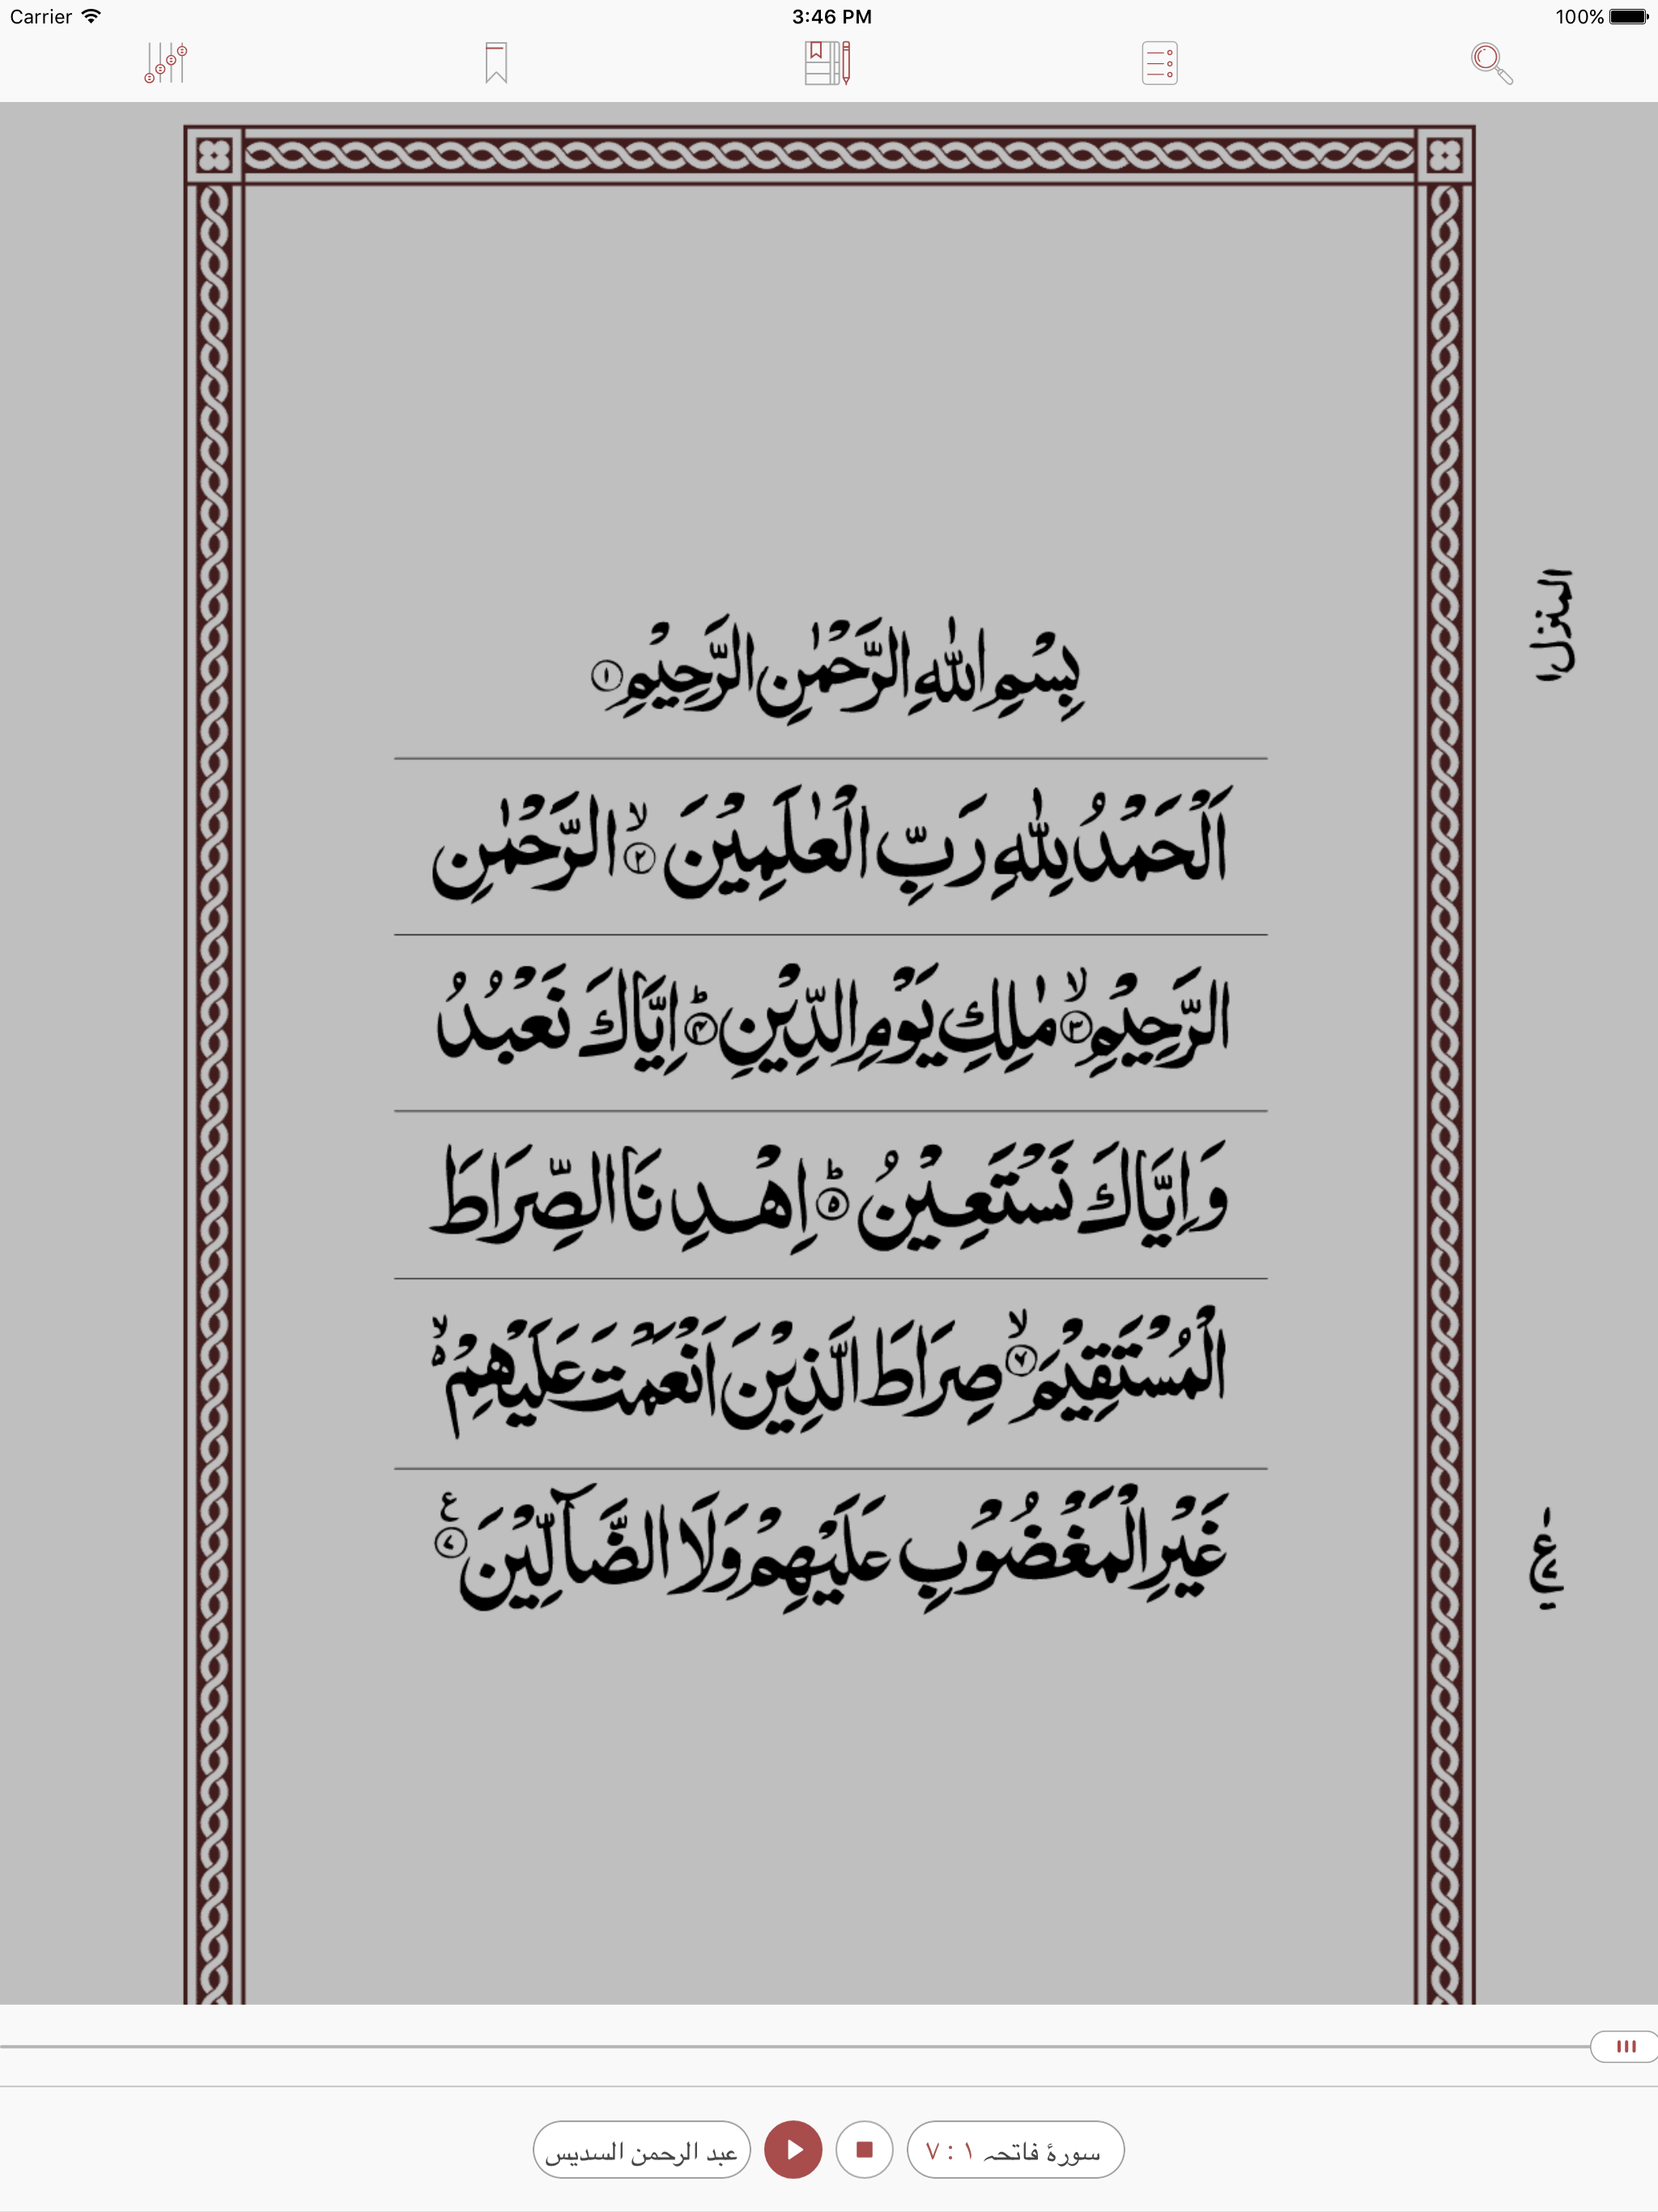 Carrier 3:46 PM 100%
المنزل ١
بِسْمِ اللّٰهِ الرَّحْمٰنِ الرَّحِيْمِ ۝١
اَلْحَمْدُ لِلّٰهِ رَبِّ الْعٰلَمِيْنَ ۝٢ۙ الرَّحْمٰنِ
الرَّحِيْمِ ۝٣ۙ مٰلِكِ يَوْمِ الدِّيْنِ ۝٤ؕ اِيَّاكَ نَعْبُدُ
وَاِيَّاكَ نَسْتَعِيْنُ ۝٥ؕ اِهْدِنَا الصِّرَاطَ
الْمُسْتَقِيْمَ ۝٦ۙ صِرَاطَ الَّذِيْنَ اَنْعَمْتَ عَلَيْهِمْ ۙ۬
غَيْرِ الْمَغْضُوْبِ عَلَيْهِمْ وَلَا الضَّآلِّيْنَ ۝٧ۧ
سورۂ فاتحہ ١ : ٧
عبد الرحمن السديس